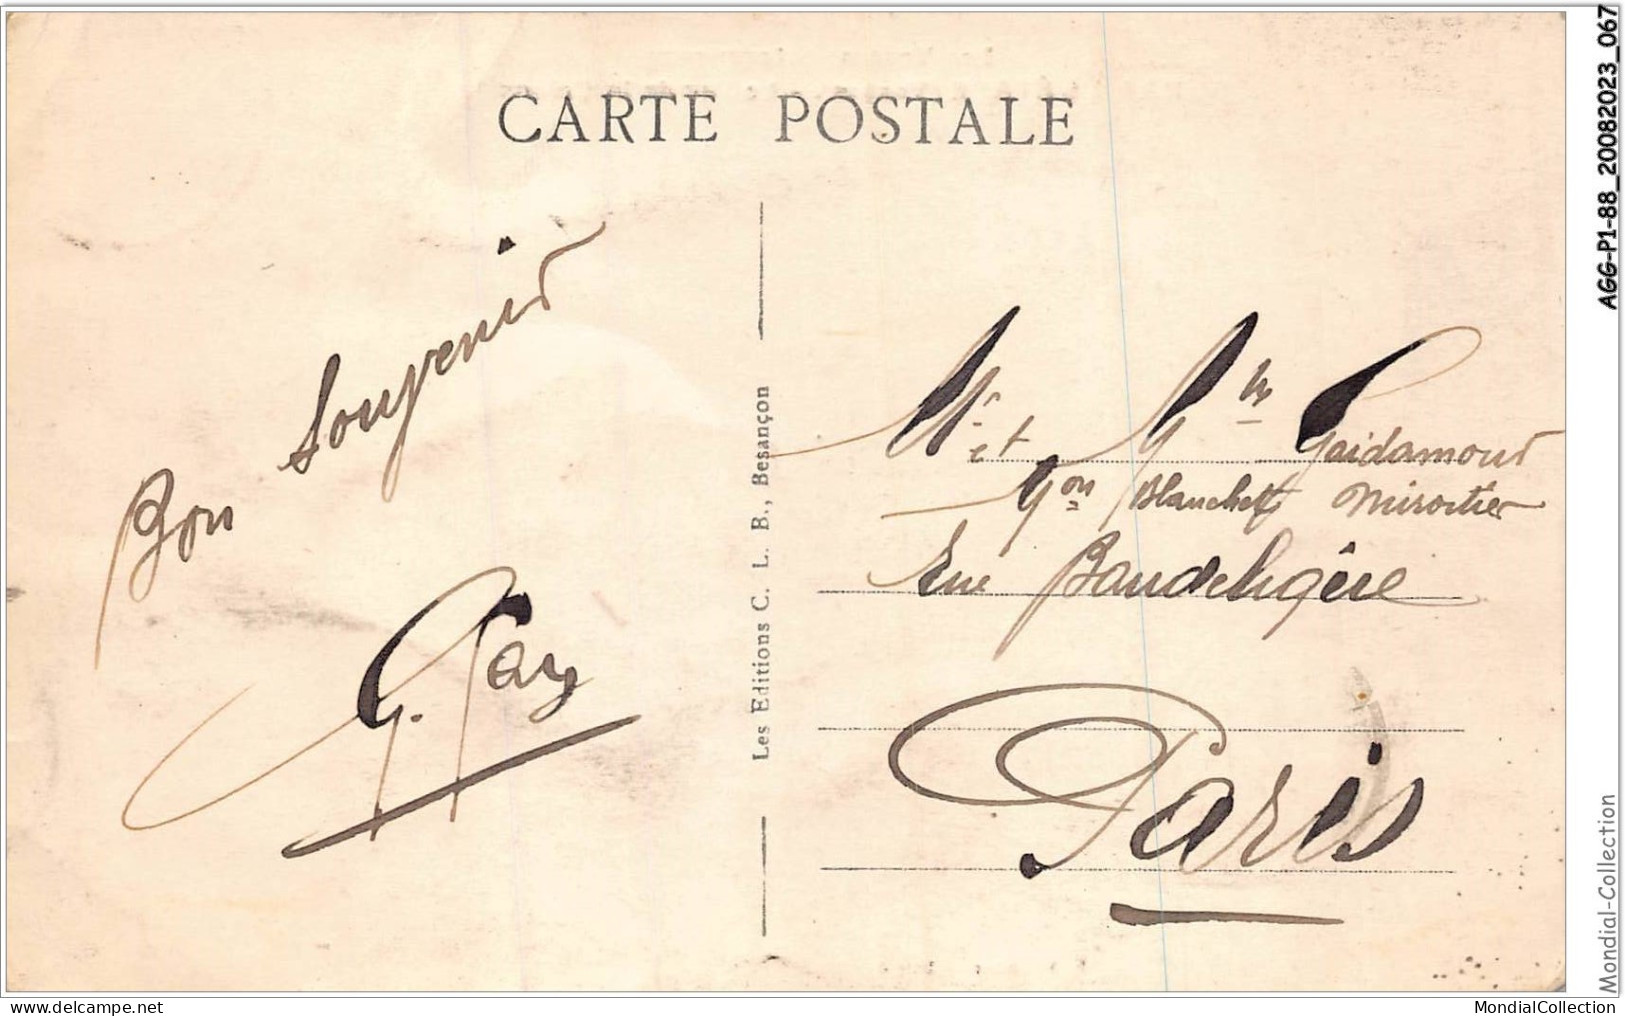 CARTE POSTALE
Bon Souvenir
G. Gay
Les Editions C. L. B., Besançon
Mr et Mme Gaidamour
Mon Blanchet Miroitier
Rue Baudeligère
Paris
AGG-P1-88_20082023_067
Mondial-Collection
www.delcampe.net
MondialCollection